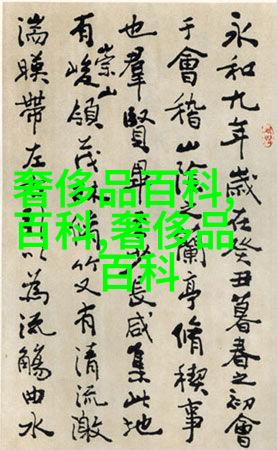 永和九年歲在癸丑暮春之初會
于會稽山陰之蘭亭脩稧事
也羣賢畢長咸集此地
有崇山峻領茂林竹又有清流激
湍暎帶左以為流觴曲水
奢侈品百科,
百科,奢侈品
百科